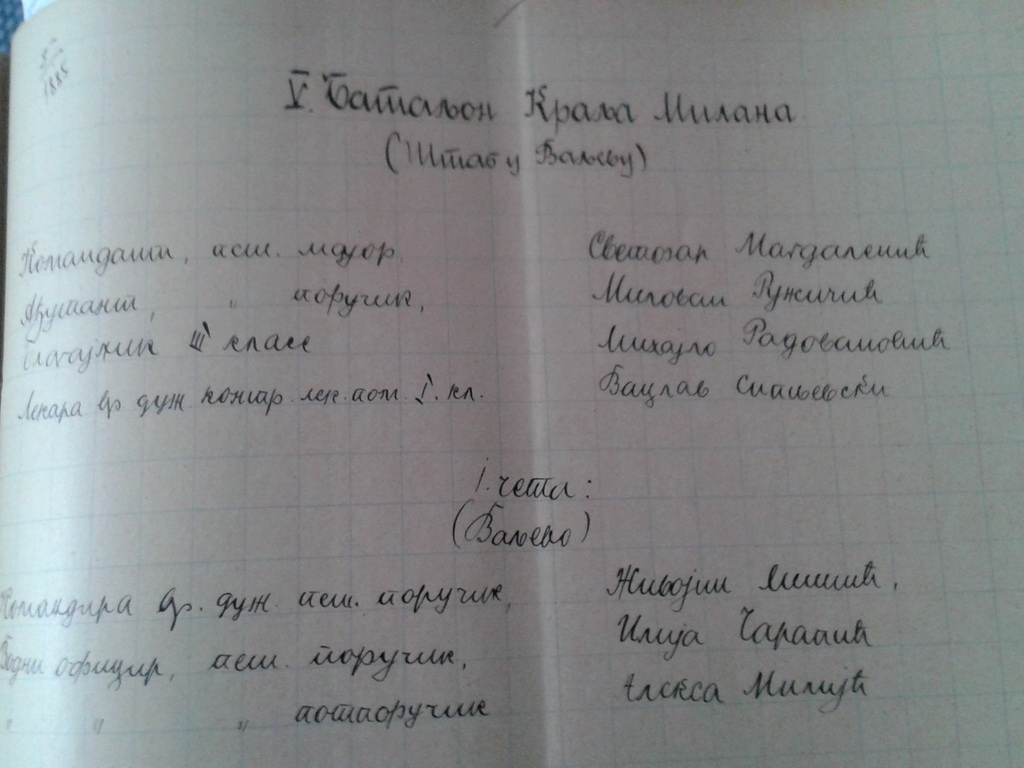 1885
V. Батаљон Краља Милана
(Штаб у Ваљеву)
Командант, пеш. мајор, Светозар Магдаленић
Ађутант, " поручик, Милован Ружичић
Благајник III класе Михајло Радовановић
Лекара вр. дуж. контр. лек. пом. I. кл. Вацлав
I. чета:
(Ваљево)
Командира вр. дуж. пеш. поручик, Живојин Мишић,
Водни официр, пеш. поручик, Илија Чарапић
" " " потпоручик Алекса Милијћ